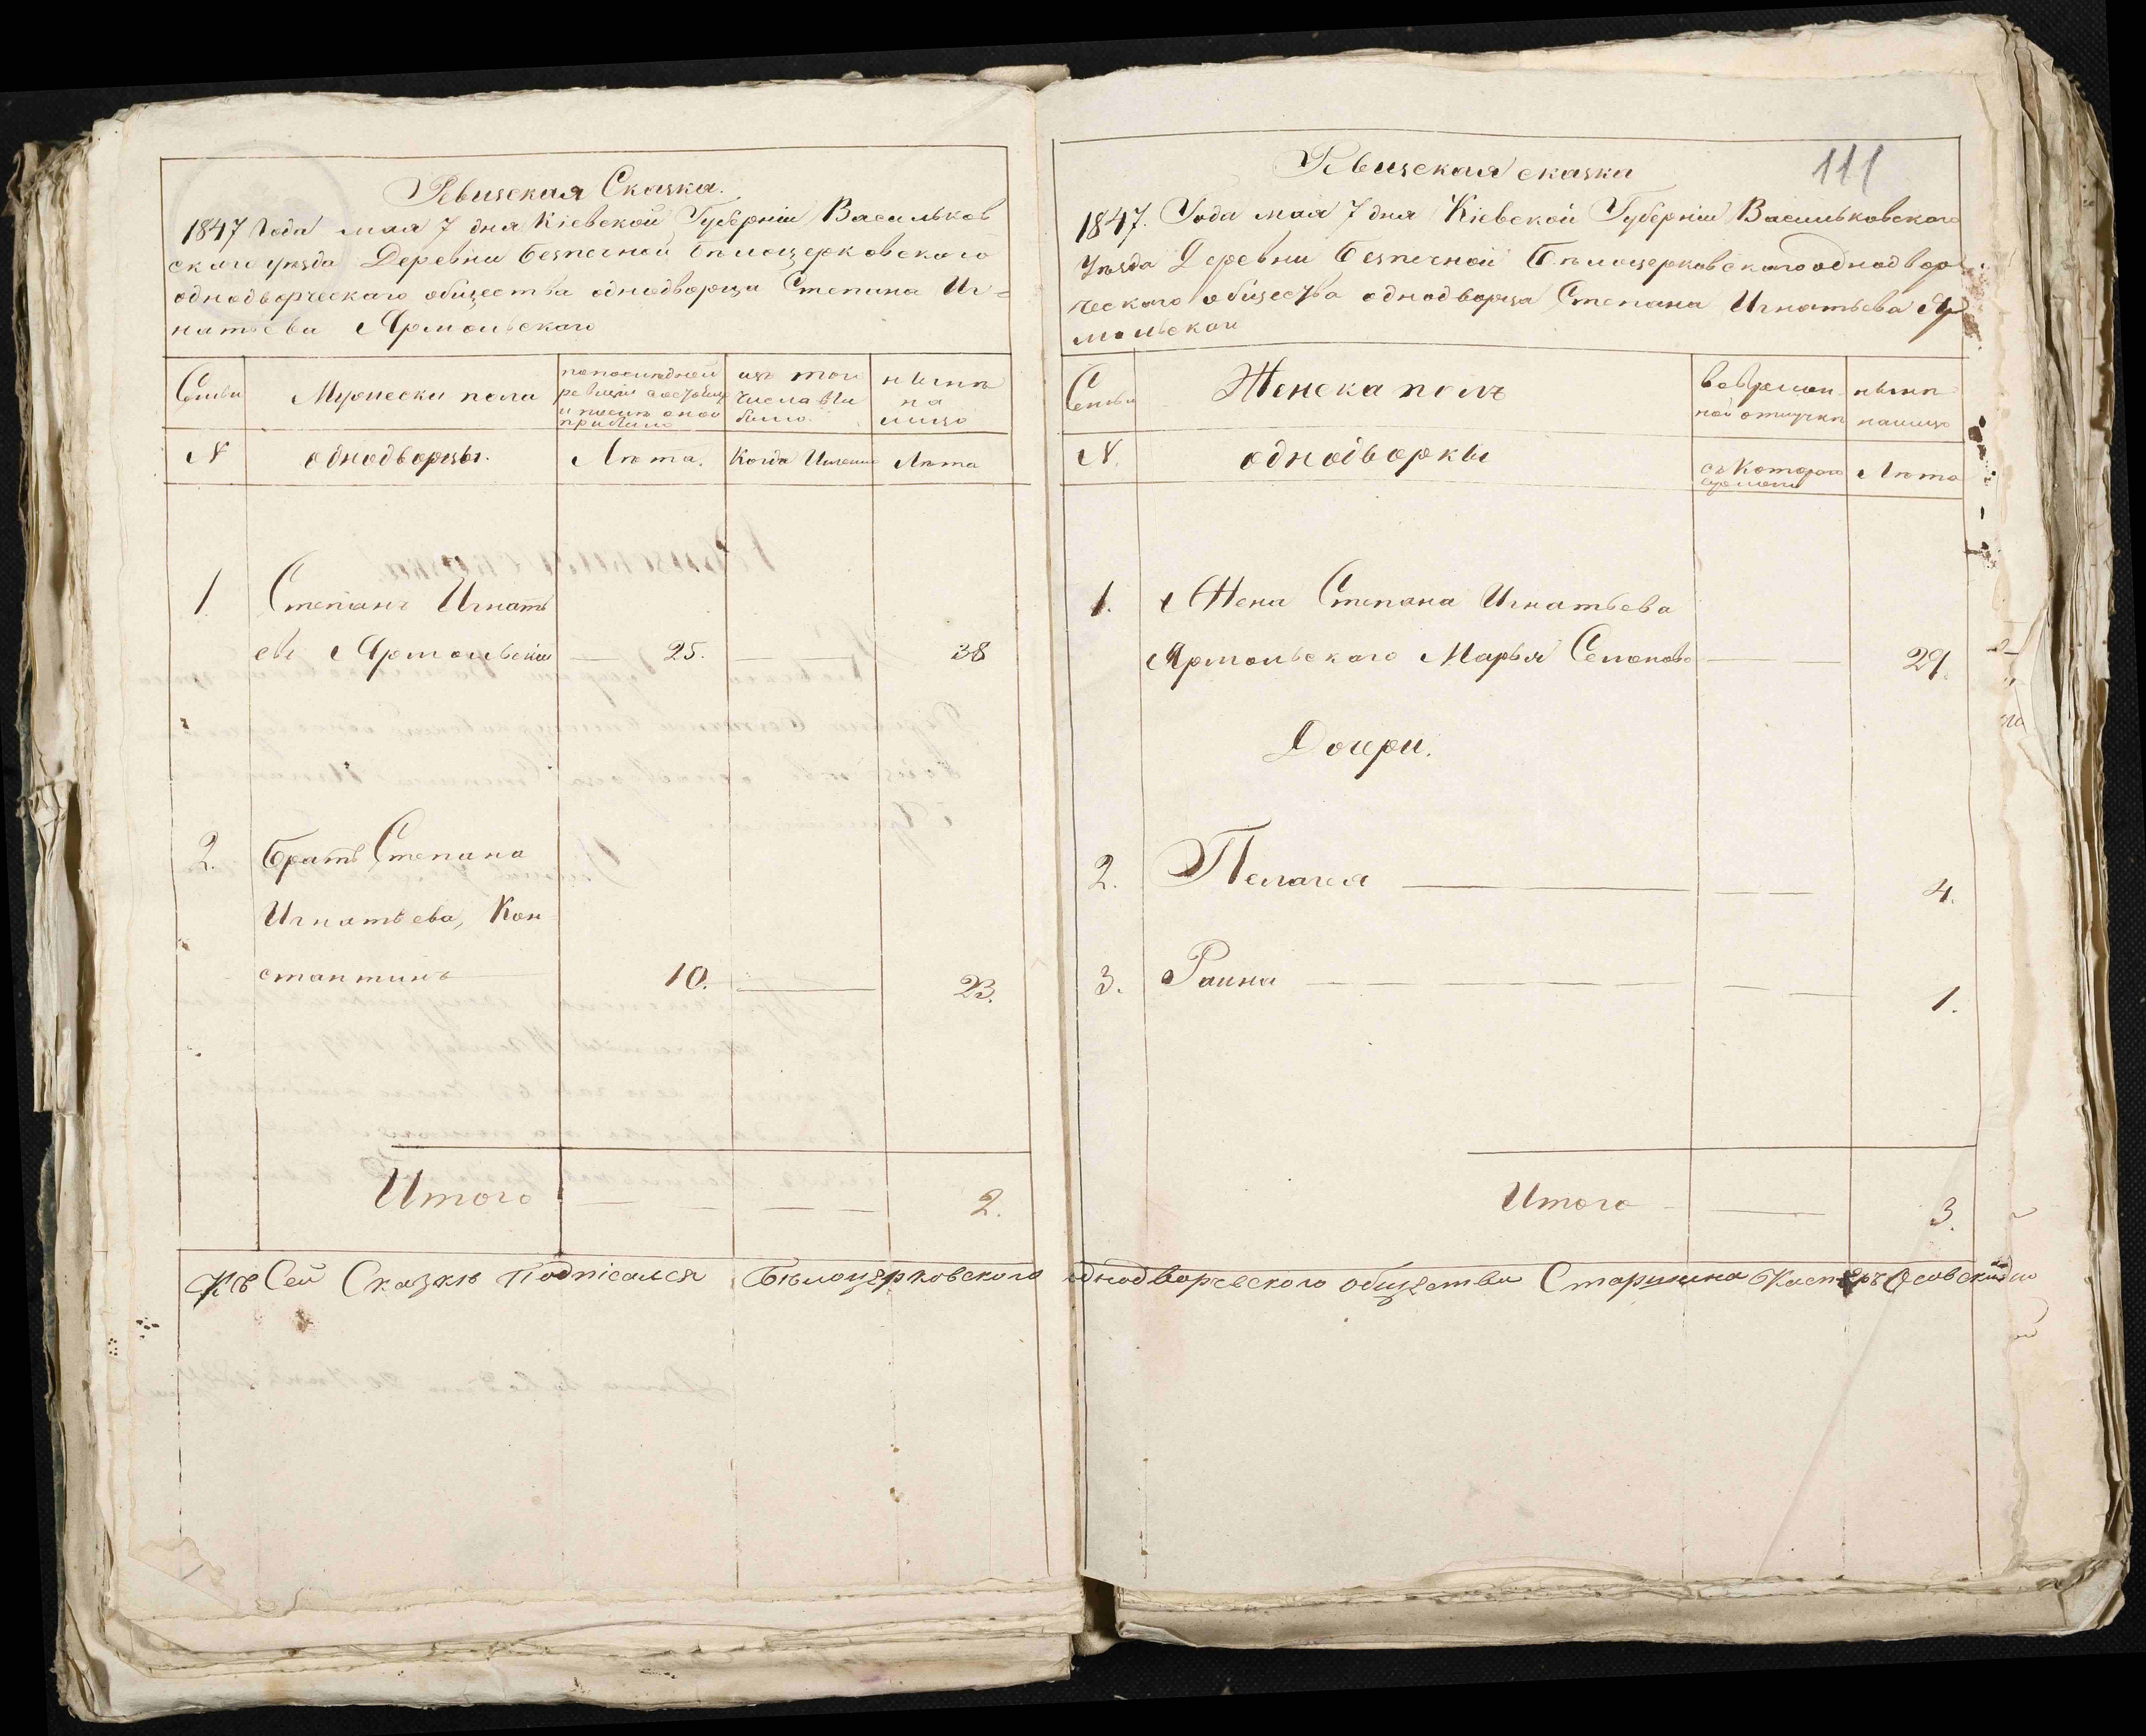 Ревизская Сказка.
1847 Года мая 7 дня Кіевской Губерніи Васильков
скаго уѣзда Деревни Безпечной Бѣлоцерковского
однодворческаго общества однодворца Степана Иг=
натьева Ярмольскаго
Семьи
Мужнески пола
попоследней
ревизіи состояще
и послѣ оной
прибыло
изъ того
числа вы
было.
нынѣ
на
лицо
№
однодворцы.
Лѣта.
Когда Именно
Лѣта
1.
Степанъ Игнать
евъ Ярмольскіи
25.
38
2.
братъ Степана
Игнатьева, Кон
стантинъ
10.
23.
Итого
2.
111
Ревизская сказка
1847. Года мая 7 дня Кіевской Губерніи Васильковского
Уѣзда Деревни Безпечной Бѣлоцерковскаго однодвор
ческаго общества однодворца Степана Игнатьева Яр
мольскаи
Семьи
Женска полъ
вовремян
ной отлучки
нынѣ
налицо
№.
однодворкы
съ Котораго
времени
Лѣта
1.
Жена Степана Игнатьева
Ярмольскаго Марья Семенова
29.
Дочери.
2.
Пелагея
4.
3.
Раина
1.
Итого
3.
Къ Сей Сказкѣ Подпісался Бѣлоцерковского однодворческого общества Старшина Касперъ Осовскій